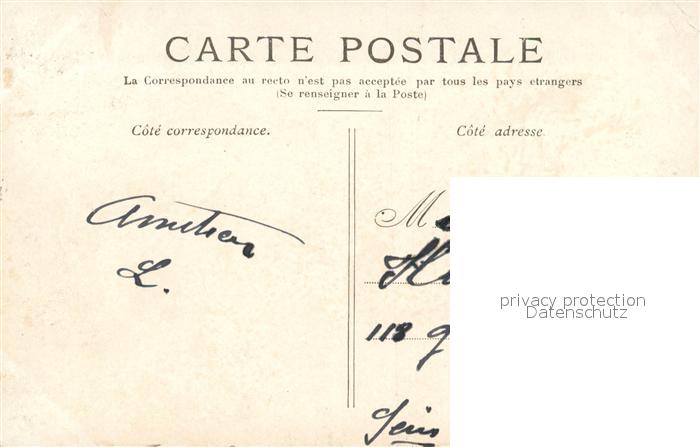 CARTE POSTALE
La Correspondance au recto n'est pas acceptée par tous les pays etrangers
(Se renseigner à la Poste)
Côté correspondance.
Côté adresse
Amities
L.
M
118
privacy protection
Datenschutz